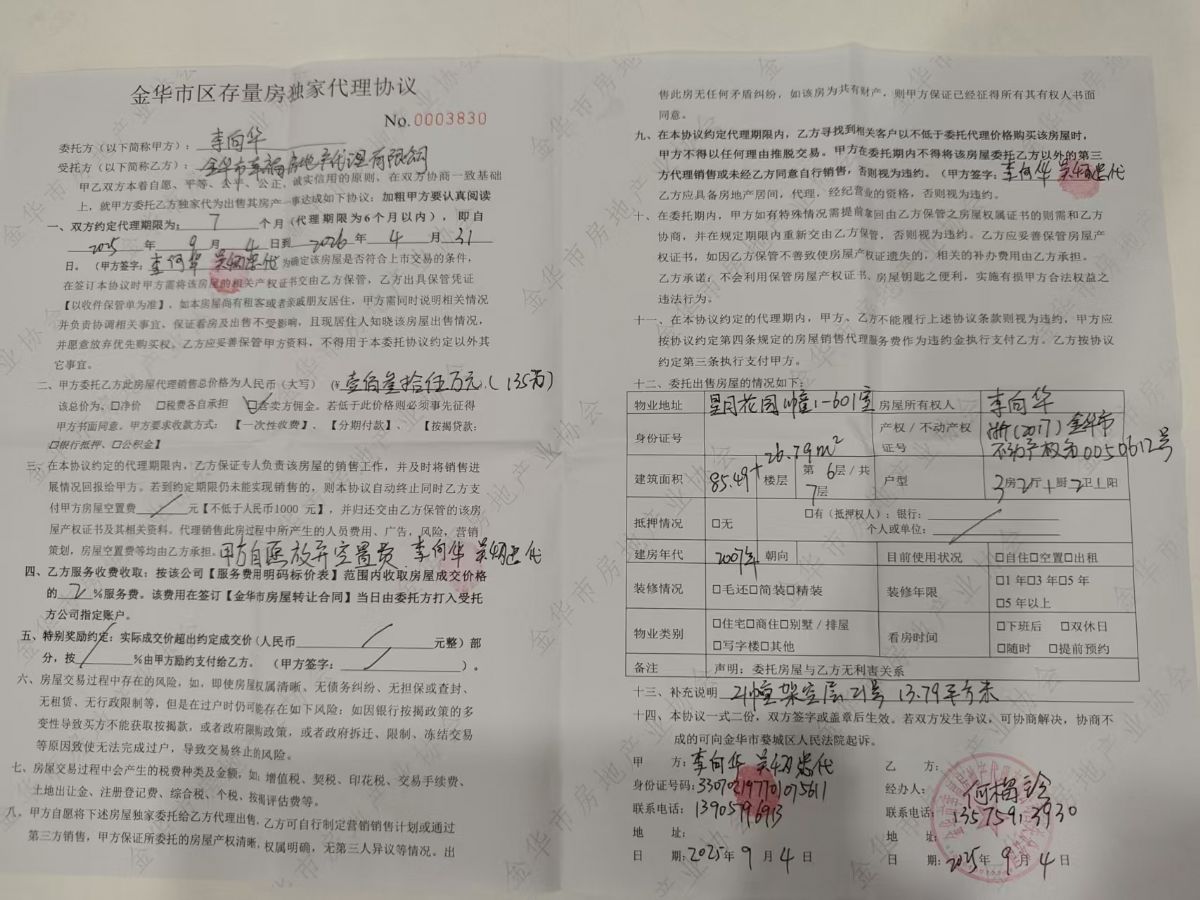 金华市区存量房独家代理协议
No.0003830
委托方（以下简称甲方）：李向华
受托方（以下简称乙方）：金华市 房地产代理有限公司
甲乙双方本着自愿、平等、公平、公正、诚实信用的原则，在双方协商一致基础
上，就甲方委托乙方独家代为出售其房产一事达成如下协议：加粗甲方要认真阅读
一、双方约定代理期限为： 7 个月（代理期限为6个月以内），即自
2025 年 9 月 4 日到 2026 年 4 月 31
日。（甲方签字：李向华 代 为确定该房屋是否符合上市交易的条件，
在签订本协议时甲方需将该房屋的相关产权证书交由乙方保管，乙方出具保管凭证
【以收件保管单为准】，如本房屋尚有租客或者亲戚朋友居住，甲方需同时说明相关情况
并负责协调相关事宜，保证看房及出售不受影响，且现居住人知晓该房屋出售情况，
并愿意放弃优先购买权。乙方应妥善保管甲方资料，不得用于本委托协议约定以外其
它事宜。
二、甲方委托乙方此房屋代理销售总价格为人民币（大写）（¥壹佰叁拾伍万元.（135万）
该总价为、□净价 □税费各自承担 ☑含卖方佣金。若低于此价格则必须事先征得
甲方书面同意。甲方要求收款方式：【一次性收费】、【分期付款】、【按揭贷款：
□银行抵押、□公积金】
三、在本协议约定的代理期限内，乙方保证专人负责该房屋的销售工作，并及时将销售进
展情况回报给甲方。若到约定期限仍未能实现销售的，则本协议自动终止同时乙方支
付甲方房屋空置费 / 元【不低于人民币1000 元】，并归还交由乙方保管的该房
屋产权证书及其相关资料。代理销售此房过程中所产生的人员费用、广告，风险，营销
策划，房屋空置费等均由乙方承担。甲方自愿放弃空置费 李向华 代
四、乙方服务收费收取：按该公司【服务费用明码标价表】范围内收取房屋成交价格
的 2 %服务费。该费用在签订【金华市房屋转让合同】当日由委托方打入受托
方公司指定账户。
五、特别奖励约定：实际成交价超出约定成交价（人民币 / 元整）部
分，按 / %由甲方励约支付给乙方。（甲方签字： / ）。
六、房屋交易过程中存在的风险，如，即使房屋权属清晰、无债务纠纷、无担保或查封、
无租赁、无行政限制等，但是在过户时仍可能存在如下风险：如因银行按揭政策的多
变性导致买方不能获取按揭款，或者政府限购政策，或者政府拆迁、限制、冻结交易
等原因致使无法完成过户，导致交易终止的风险。
七、房屋交易过程中会产生的税费种类及金额，如：增值税、契税、印花税、交易手续费、
土地出让金、注册登记费、综合税、个税、按揭评估费等。
八、甲方自愿将下述房屋独家委托给乙方代理出售，乙方可自行制定营销销售计划或通过
第三方销售，甲方保证所委托的房屋产权清晰，权属明确，无第三人异议等情况。出
售此房无任何矛盾纠纷，如该房为共有财产，则甲方保证已经征得所有其有权人书面
同意。
九、在本协议约定代理期限内，乙方寻找到相关客户以不低于委托代理价格购买该房屋时，
甲方不得以任何理由推脱交易。甲方在委托期内不得将该房屋委托乙方以外的第三
方代理销售或未经乙方同意自行销售，否则视为违约。（甲方签字：李向华 代
乙方应具备房地产居间，代理，经纪营业的资格，否则视为违约。
十、在委托期内，甲方如有特殊情况需提前拿回由乙方保管之房屋权属证书的则需和乙方
协商，并在规定期限内重新交由乙方保管，否则视为违约。乙方应妥善保管房屋产
权证书，如因乙方保管不善致使房屋产权证遗失的，相关的补办费用由乙方承担。
乙方承诺：不会利用保管房屋产权证书、房屋钥匙之便利，实施有损甲方合法权益之
违法行为。
十一、在本协议约定的代理期内，甲方、乙方不能履行上述协议条款则视为违约，甲方应
按协议约定第四条规定的房屋销售代理服务费作为违约金执行支付乙方。乙方按协议
约定第三条执行支付甲方。
十二、委托出售房屋的情况如下：
物业地址 星月花园 幢1-601室 房屋所有权人 李向华
身份证号 产权/不动产权证号 浙（2017）金华市不动产权第0050612号
建筑面积 85.49+26.79m² 楼层 第6层/共7层 户型 3房2厅1厨2卫1阳
抵押情况 □无 □有（抵押权人）：银行： 个人或单位： /
建房年代 2007年 朝向 目前使用状况 □自住□空置□出租
装修情况 □毛还□简装□精装 装修年限 □1年□3年□5年 □5年以上
物业类别 □住宅□商住□别墅/排屋 □写字楼□其他 看房时间 □下班后 □双休日 □随时 □提前预约
备注 声明：委托房屋与乙方无利害关系
十三、补充说明 21幢架空层21号 13.79平方米
十四、本协议一式二份，双方签字或盖章后生效。若双方发生争议，可协商解决，协商不
成的可向金华市婺城区人民法院起诉。
甲 方：李向华 代
身份证号码：330702197701075611
联系电话：13905796913
地 址：
日 期：2025年 9 月 4 日
乙 方：
经办人：何梅
联系电话：13575913930
地 址：
日 期：2025年 9 月 4 日